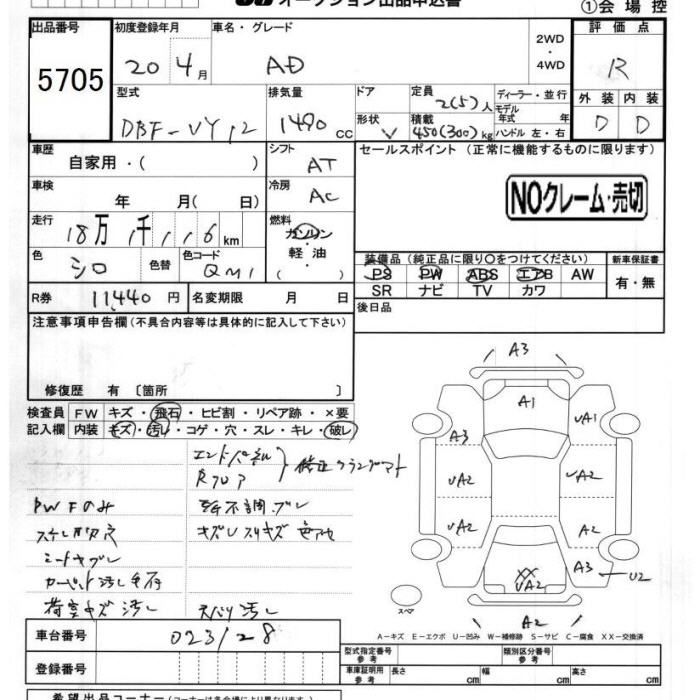 オークション出品申込書
①会場控
出品番号 初度登録年月 車名・グレード 評価点
5705
20 4月
AD
2WD
・
4WD
R
型式 排気量 ドア 定員 ディーラー・並行
2(5)人 モデル
外装 内装
DBF-VY12 1490 cc
形状 V 積載 450(300)kg
年式 年
ハンドル 左・右
D D
車歴 自家用・( )
シフト AT
セールスポイント (正常に機能するものに限ります)
車検 年 月( 日)
冷房 AC
NOクレーム・売切
走行 18万 千 6 km
燃料 ガソリン
・
軽油
( )
色 シロ 色替 色コード QM1
装備品 (純正品に限り○をつけてください) 新車保証書
PS PW ABS エアB AW
SR ナビ TV カワ
有・無
R券 11440 円 名変期限 月 日
後日品
注意事項申告欄(不具合内容等は具体的に記入して下さい)
修復歴 有 〔箇所 〕
検査員 FW キズ・飛石・ヒビ割・リペア跡・×要
記入欄 内装 キズ・汚れ・コゲ・穴・スレ・キレ・破レ
エンドパネル
Rフロア
修正
PWFのみ
カーペット汚し
荷室キズ 汚し
汚し
A3
A1
UA1
A3
UA2
UA2
UA2
A2
A3
U2
XX
UA2
A2
スペア
A-キズ E-エクボ U-凹み W-補修跡 S-サビ C-腐食 XX-交換済
車台番号 023128
登録番号
型式指定番号
参考
類別区分番号
参考
車庫証明用
参考
長さ cm 幅 cm 高さ cm
希望出品コーナー